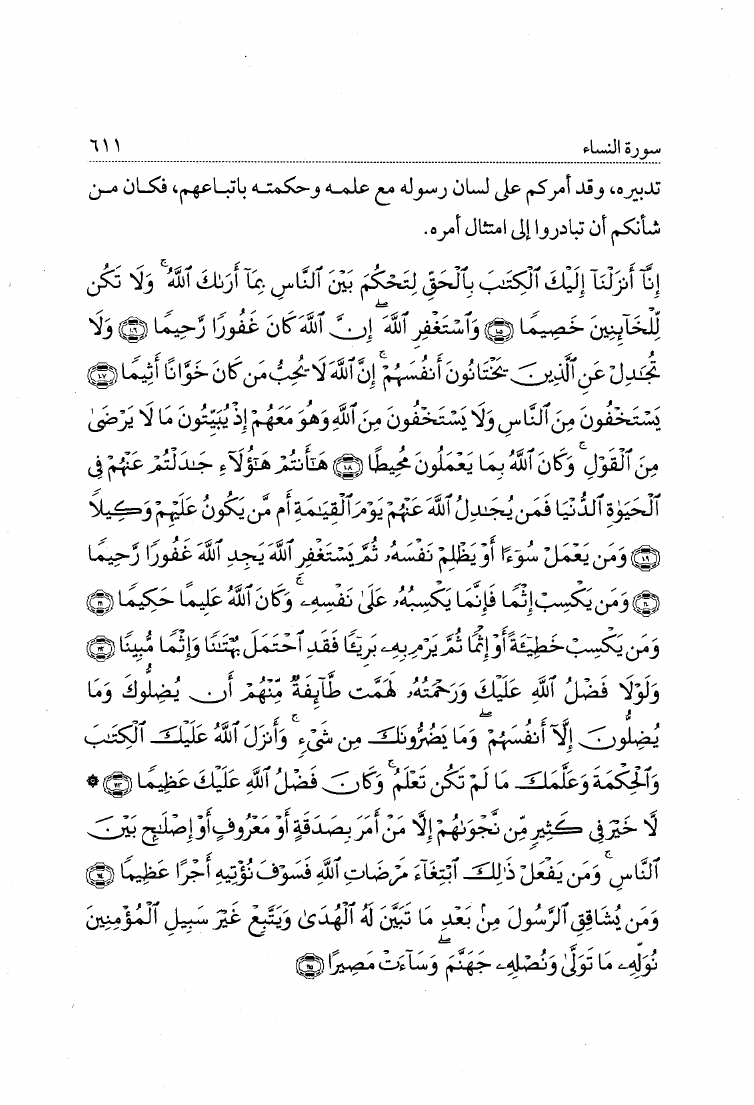 سورة النساء ٦١١
تدبيره، وقد أمركم على لسان رسوله مع علمه وحكمته باتباعهم، فكان من
شأنكم أن تبادروا إلى امتثال أمره.
إِنَّآ أَنزَلْنَآ إِلَيْكَ ٱلْكِتَٰبَ بِٱلْحَقِّ لِتَحْكُمَ بَيْنَ ٱلنَّاسِ بِمَآ أَرَىٰكَ ٱللَّهُ ۚ وَلَا تَكُن
لِّلْخَآئِنِينَ خَصِيمًا ١٠٥ وَٱسْتَغْفِرِ ٱللَّهَ ۖ إِنَّ ٱللَّهَ كَانَ غَفُورًا رَّحِيمًا ١٠٦ وَلَا
تُجَٰدِلْ عَنِ ٱلَّذِينَ يَخْتَانُونَ أَنفُسَهُمْ ۚ إِنَّ ٱللَّهَ لَا يُحِبُّ مَن كَانَ خَوَّانًا أَثِيمًا ١٠٧
يَسْتَخْفُونَ مِنَ ٱلنَّاسِ وَلَا يَسْتَخْفُونَ مِنَ ٱللَّهِ وَهُوَ مَعَهُمْ إِذْ يُبَيِّتُونَ مَا لَا يَرْضَىٰ
مِنَ ٱلْقَوْلِ ۚ وَكَانَ ٱللَّهُ بِمَا يَعْمَلُونَ مُحِيطًا ١٠٨ هَٰٓأَنتُمْ هَٰٓؤُلَآءِ جَٰدَلْتُمْ عَنْهُمْ فِى
ٱلْحَيَوٰةِ ٱلدُّنْيَا فَمَن يُجَٰدِلُ ٱللَّهَ عَنْهُمْ يَوْمَ ٱلْقِيَٰمَةِ أَم مَّن يَكُونُ عَلَيْهِمْ وَكِيلًا
١٠٩ وَمَن يَعْمَلْ سُوٓءًا أَوْ يَظْلِمْ نَفْسَهُۥ ثُمَّ يَسْتَغْفِرِ ٱللَّهَ يَجِدِ ٱللَّهَ غَفُورًا رَّحِيمًا
١١٠ وَمَن يَكْسِبْ إِثْمًا فَإِنَّمَا يَكْسِبُهُۥ عَلَىٰ نَفْسِهِۦ ۚ وَكَانَ ٱللَّهُ عَلِيمًا حَكِيمًا ١١١
وَمَن يَكْسِبْ خَطِيٓـَٔةً أَوْ إِثْمًا ثُمَّ يَرْمِ بِهِۦ بَرِيٓـًٔا فَقَدِ ٱحْتَمَلَ بُهْتَٰنًا وَإِثْمًا مُّبِينًا ١١٢
وَلَوْلَا فَضْلُ ٱللَّهِ عَلَيْكَ وَرَحْمَتُهُۥ لَهَمَّت طَّآئِفَةٌ مِّنْهُمْ أَن يُضِلُّوكَ وَمَا
يُضِلُّونَ إِلَّآ أَنفُسَهُمْ ۖ وَمَا يَضُرُّونَكَ مِن شَىْءٍ ۚ وَأَنزَلَ ٱللَّهُ عَلَيْكَ ٱلْكِتَٰبَ
وَٱلْحِكْمَةَ وَعَلَّمَكَ مَا لَمْ تَكُن تَعْلَمُ ۚ وَكَانَ فَضْلُ ٱللَّهِ عَلَيْكَ عَظِيمًا ١١٣ *
لَّا خَيْرَ فِى كَثِيرٍ مِّن نَّجْوَىٰهُمْ إِلَّا مَنْ أَمَرَ بِصَدَقَةٍ أَوْ مَعْرُوفٍ أَوْ إِصْلَٰحٍۭ بَيْنَ
ٱلنَّاسِ ۚ وَمَن يَفْعَلْ ذَٰلِكَ ٱبْتِغَآءَ مَرْضَاتِ ٱللَّهِ فَسَوْفَ نُؤْتِيهِ أَجْرًا عَظِيمًا ١١٤
وَمَن يُشَاقِقِ ٱلرَّسُولَ مِنۢ بَعْدِ مَا تَبَيَّنَ لَهُ ٱلْهُدَىٰ وَيَتَّبِعْ غَيْرَ سَبِيلِ ٱلْمُؤْمِنِينَ
نُوَلِّهِۦ مَا تَوَلَّىٰ وَنُصْلِهِۦ جَهَنَّمَ ۖ وَسَآءَتْ مَصِيرًا ١١٥